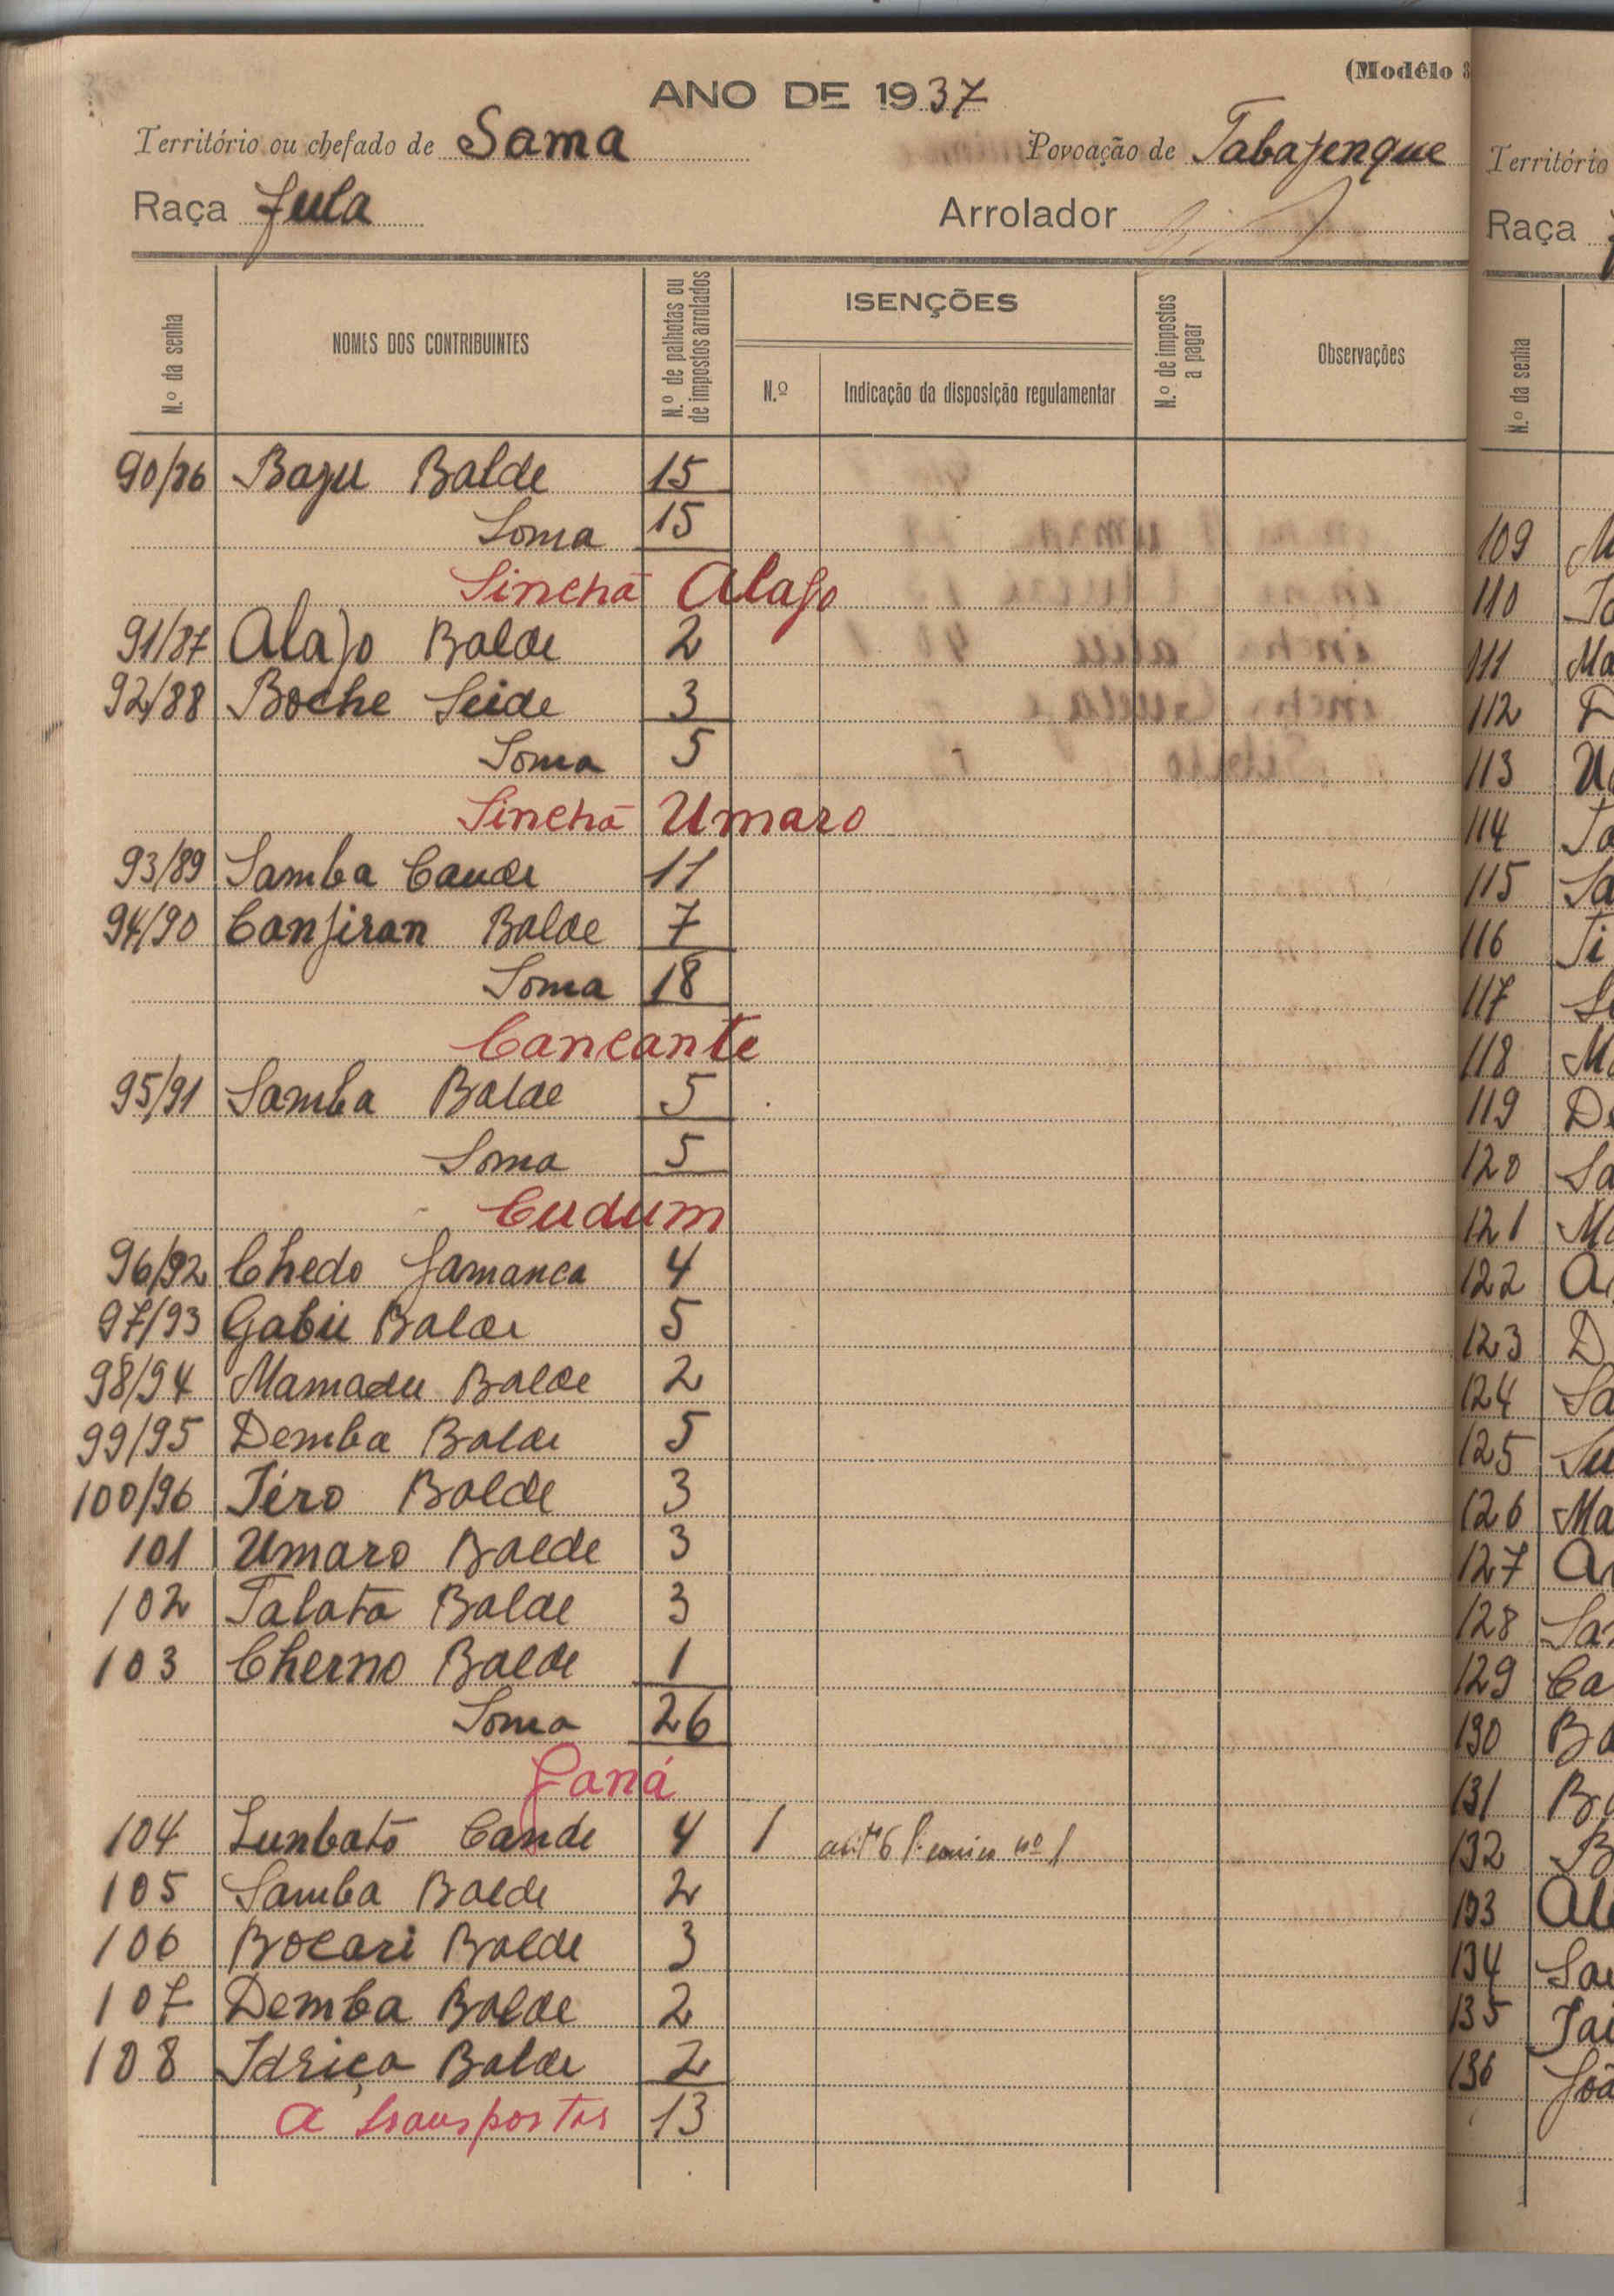 (Modêlo 3
ANO DE 1937
Território ou chefado de Sama Povoação de Tabajenque
Raça Fula Arrolador
N.º da senha NOMES DOS CONTRIBUINTES N.º de palhotas ou de impostos arrolados ISENÇÕES N.º de impostos a pagar Observações
N.º Indicação da disposição regulamentar
90/86 Baju Balde 15
Soma 15
Sinchã Alajo
91/87 Alajo Balde 2
92/88 Boche Seide 3
Soma 5
Sinchã Umaro
93/89 Samba Cande 11
94/90 Canjiran Balde 7
Soma 18
Cancante
95/91 Samba Balde 5
Soma 5
Cudum
96/92 Chedo Jamanca 4
97/93 Gabú Balde 5
98/94 Mamadu Balde 2
99/95 Demba Balde 5
100/96 Téro Balde 3
101 Umaro Balde 3
102 Talata Balde 3
103 Cherno Balde 1
Soma 26
Janá
104 Sunbato Cande 4 1 nº 1
105 Samba Balde 2
106 Bocari Balde 3
107 Demba Balde 2
108 Idriça Balde 2
A transportar 13
Território
Raça
N.º da senha
109 M
110
111 Ma
112
113
114
115 Sa
116
117
118 M
119 De
120 Sa
121 Ma
122 A
123 D
124 Sa
125 Su
126 Ma
127
128
129 Ca
130 Ba
131 B
132 B
133 Al
134
135 Jai
136 Joã